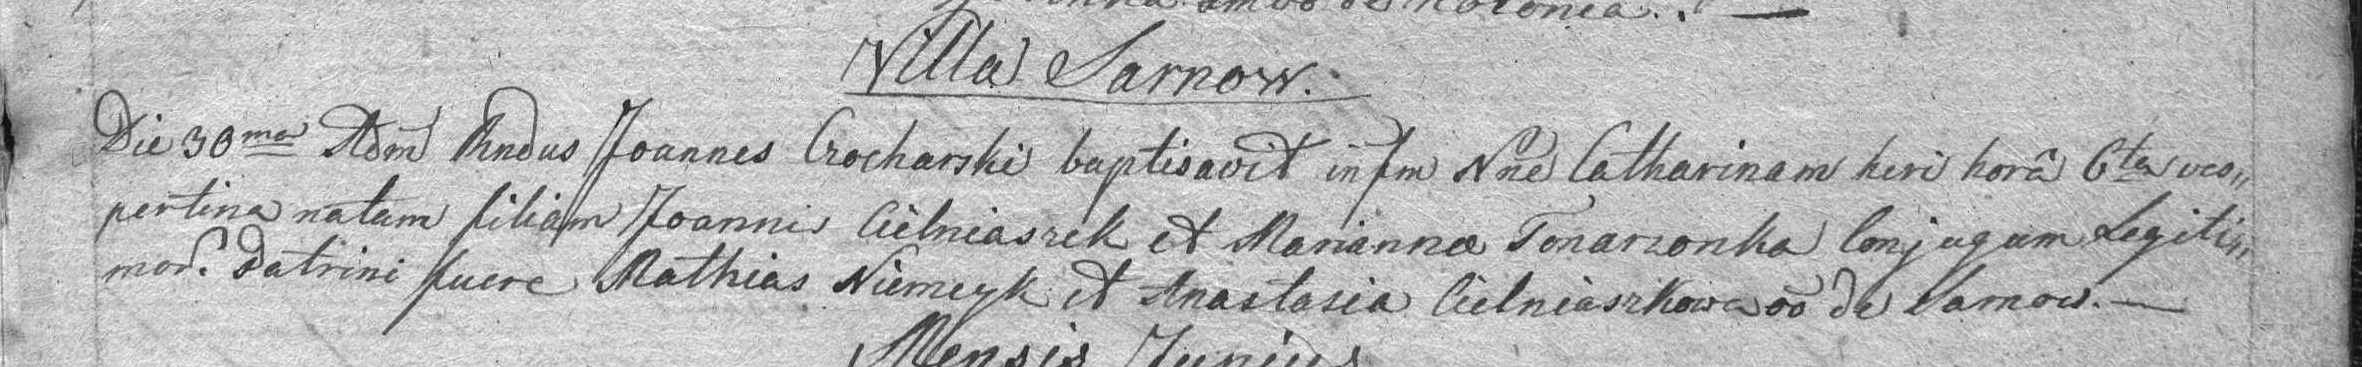 de Kolonia. —
Villa Sarnow.
Die 30ma Adm Rndus Joannes Crocharski baptisavit infm Nne Catharinam heri horâ 6ta ves„
pertina natam filiam Joannis Cielniaszek et Mariannæ Tonarzonka Conjugum Legiti„
mor. Patrini fuere Mathias Niemczyk et Anastasia Cielniaszkowa oo de Sarnow. —
Mensis Junius